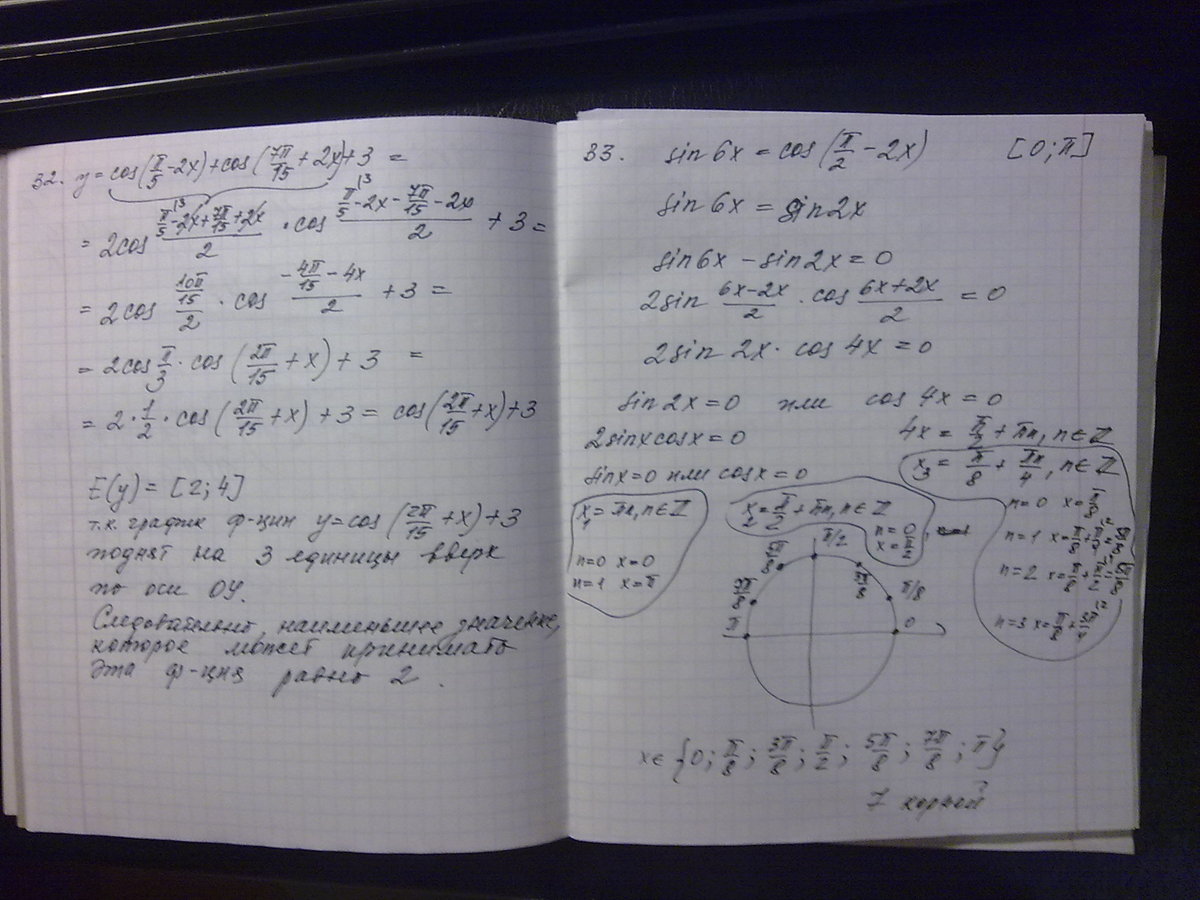 32. y = cos(π/5 - 2x) + cos(7π/15 + 2x) + 3 =
= 2cos (π/5 - 2x + 7π/15 + 2x)/2 · cos (π/5 - 2x - 7π/15 - 2x)/2 + 3 =
= 2cos (10π/15)/2 · cos (-4π/15 - 4x)/2 + 3 =
= 2cos π/3 · cos (2π/15 + x) + 3 =
= 2 · 1/2 · cos (2π/15 + x) + 3 = cos(2π/15 + x) + 3
E(y) = [2; 4]
т.к. график ф-ции y = cos (2π/15 + x) + 3
поднят на 3 единицы вверх
по оси OY.
Следовательно, наименьшее значение,
которое может принимать
эта ф-ция равно 2.
33. sin 6x = cos (π/2 - 2x) [0; π]
sin 6x = sin 2x
sin 6x - sin 2x = 0
2sin (6x - 2x)/2 · cos (6x + 2x)/2 = 0
2 sin 2x · cos 4x = 0
sin 2x = 0 или cos 4x = 0
2 sin x cos x = 0
4x = π/2 + πn, n ∈ Z
sin x = 0 или cos x = 0
x₃ = π/8 + πn/4, n ∈ Z
x₁ = πn, n ∈ Z
x₂ = π/2 + πn, n ∈ Z
n = 0 x = π/2
n = 0 x = 0
n = 1 x = π
n = 0 x = π/8
n = 1 x = π/8 + π/4 = 3π/8
n = 2 x = π/8 + π/2 = 5π/8
n = 3 x = π/8 + 3π/4 =
π/2
5π/8
3π/8
7π/8
π/8
π
0
x ∈ {0; π/8; 3π/8; π/2; 5π/8; 7π/8; π}
7 корней